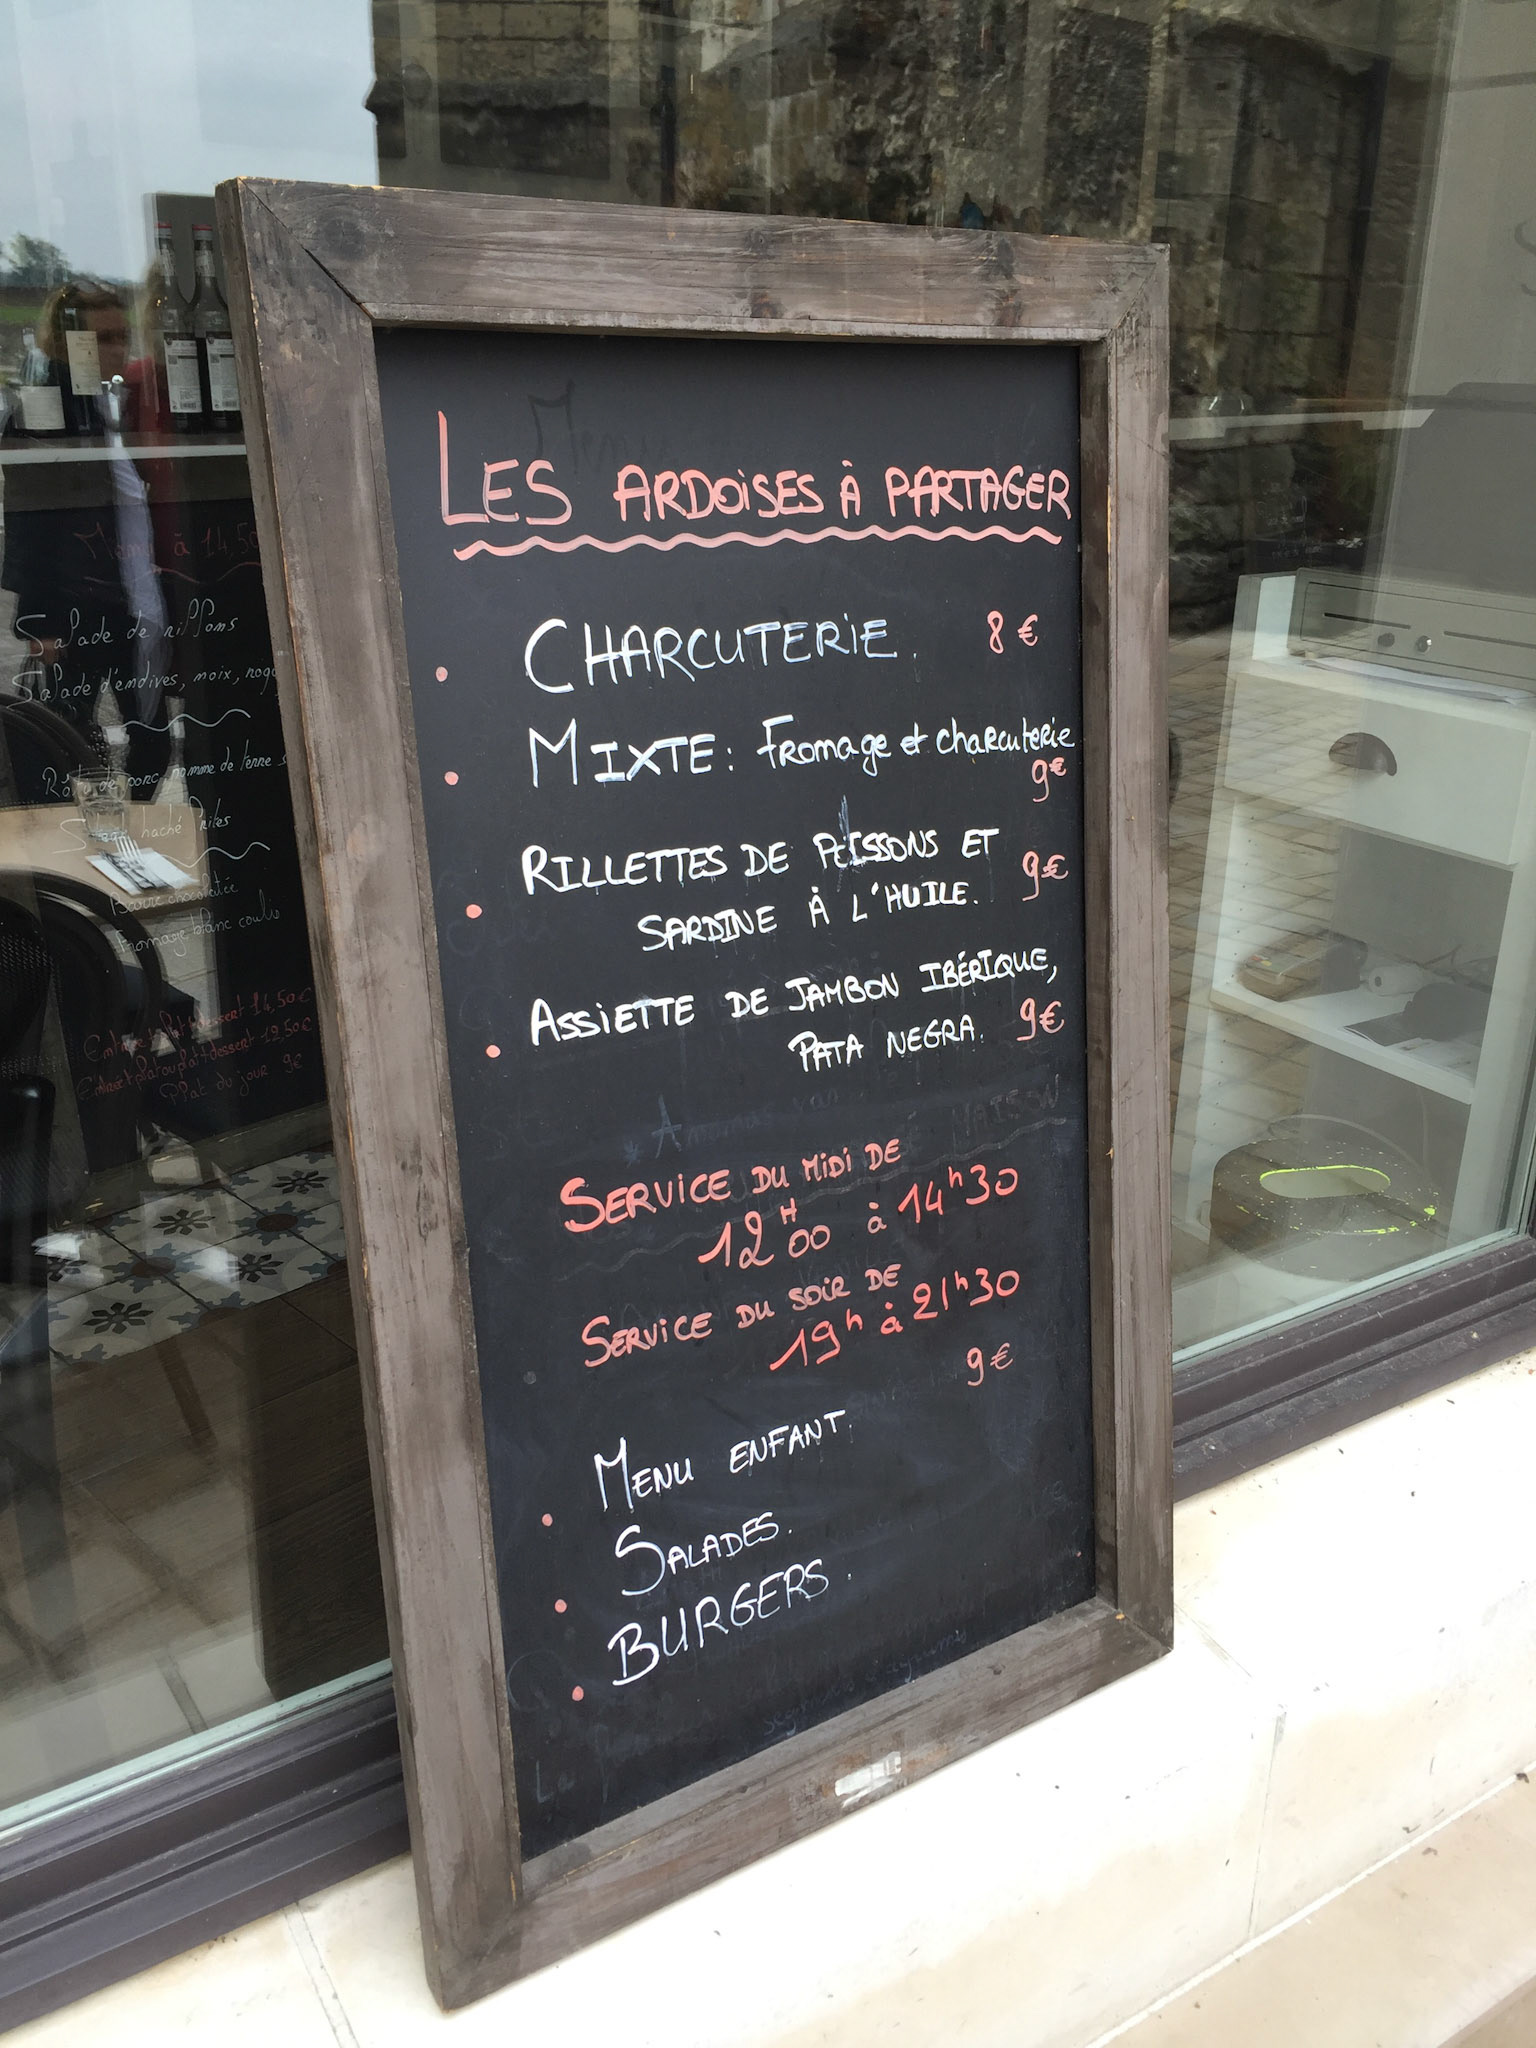 LES ARDOISES À PARTAGER
CHARCUTERIE. 8€
MIXTE: Fromage et charcuterie
9€
RILLETTES DE POISSONS ET
SARDINE À L'HUILE. 9€
ASSIETTE DE JAMBON IBÉRIQUE,
PATA NEGRA. 9€
SERVICE DU MIDI DE
12H00 à 14h30
SERVICE DU SOIR DE
19h à 21h30
9€
MENU ENFANT.
SALADES.
BURGERS.
Menu à 14,50
Salade de
Salade d'endives, noix,
Rôti de porc, pomme de terre
haché frites
chocolatée
Fromage blanc coulis
dessert 14,50€
dessert 12,50€
Plat du jour 9€